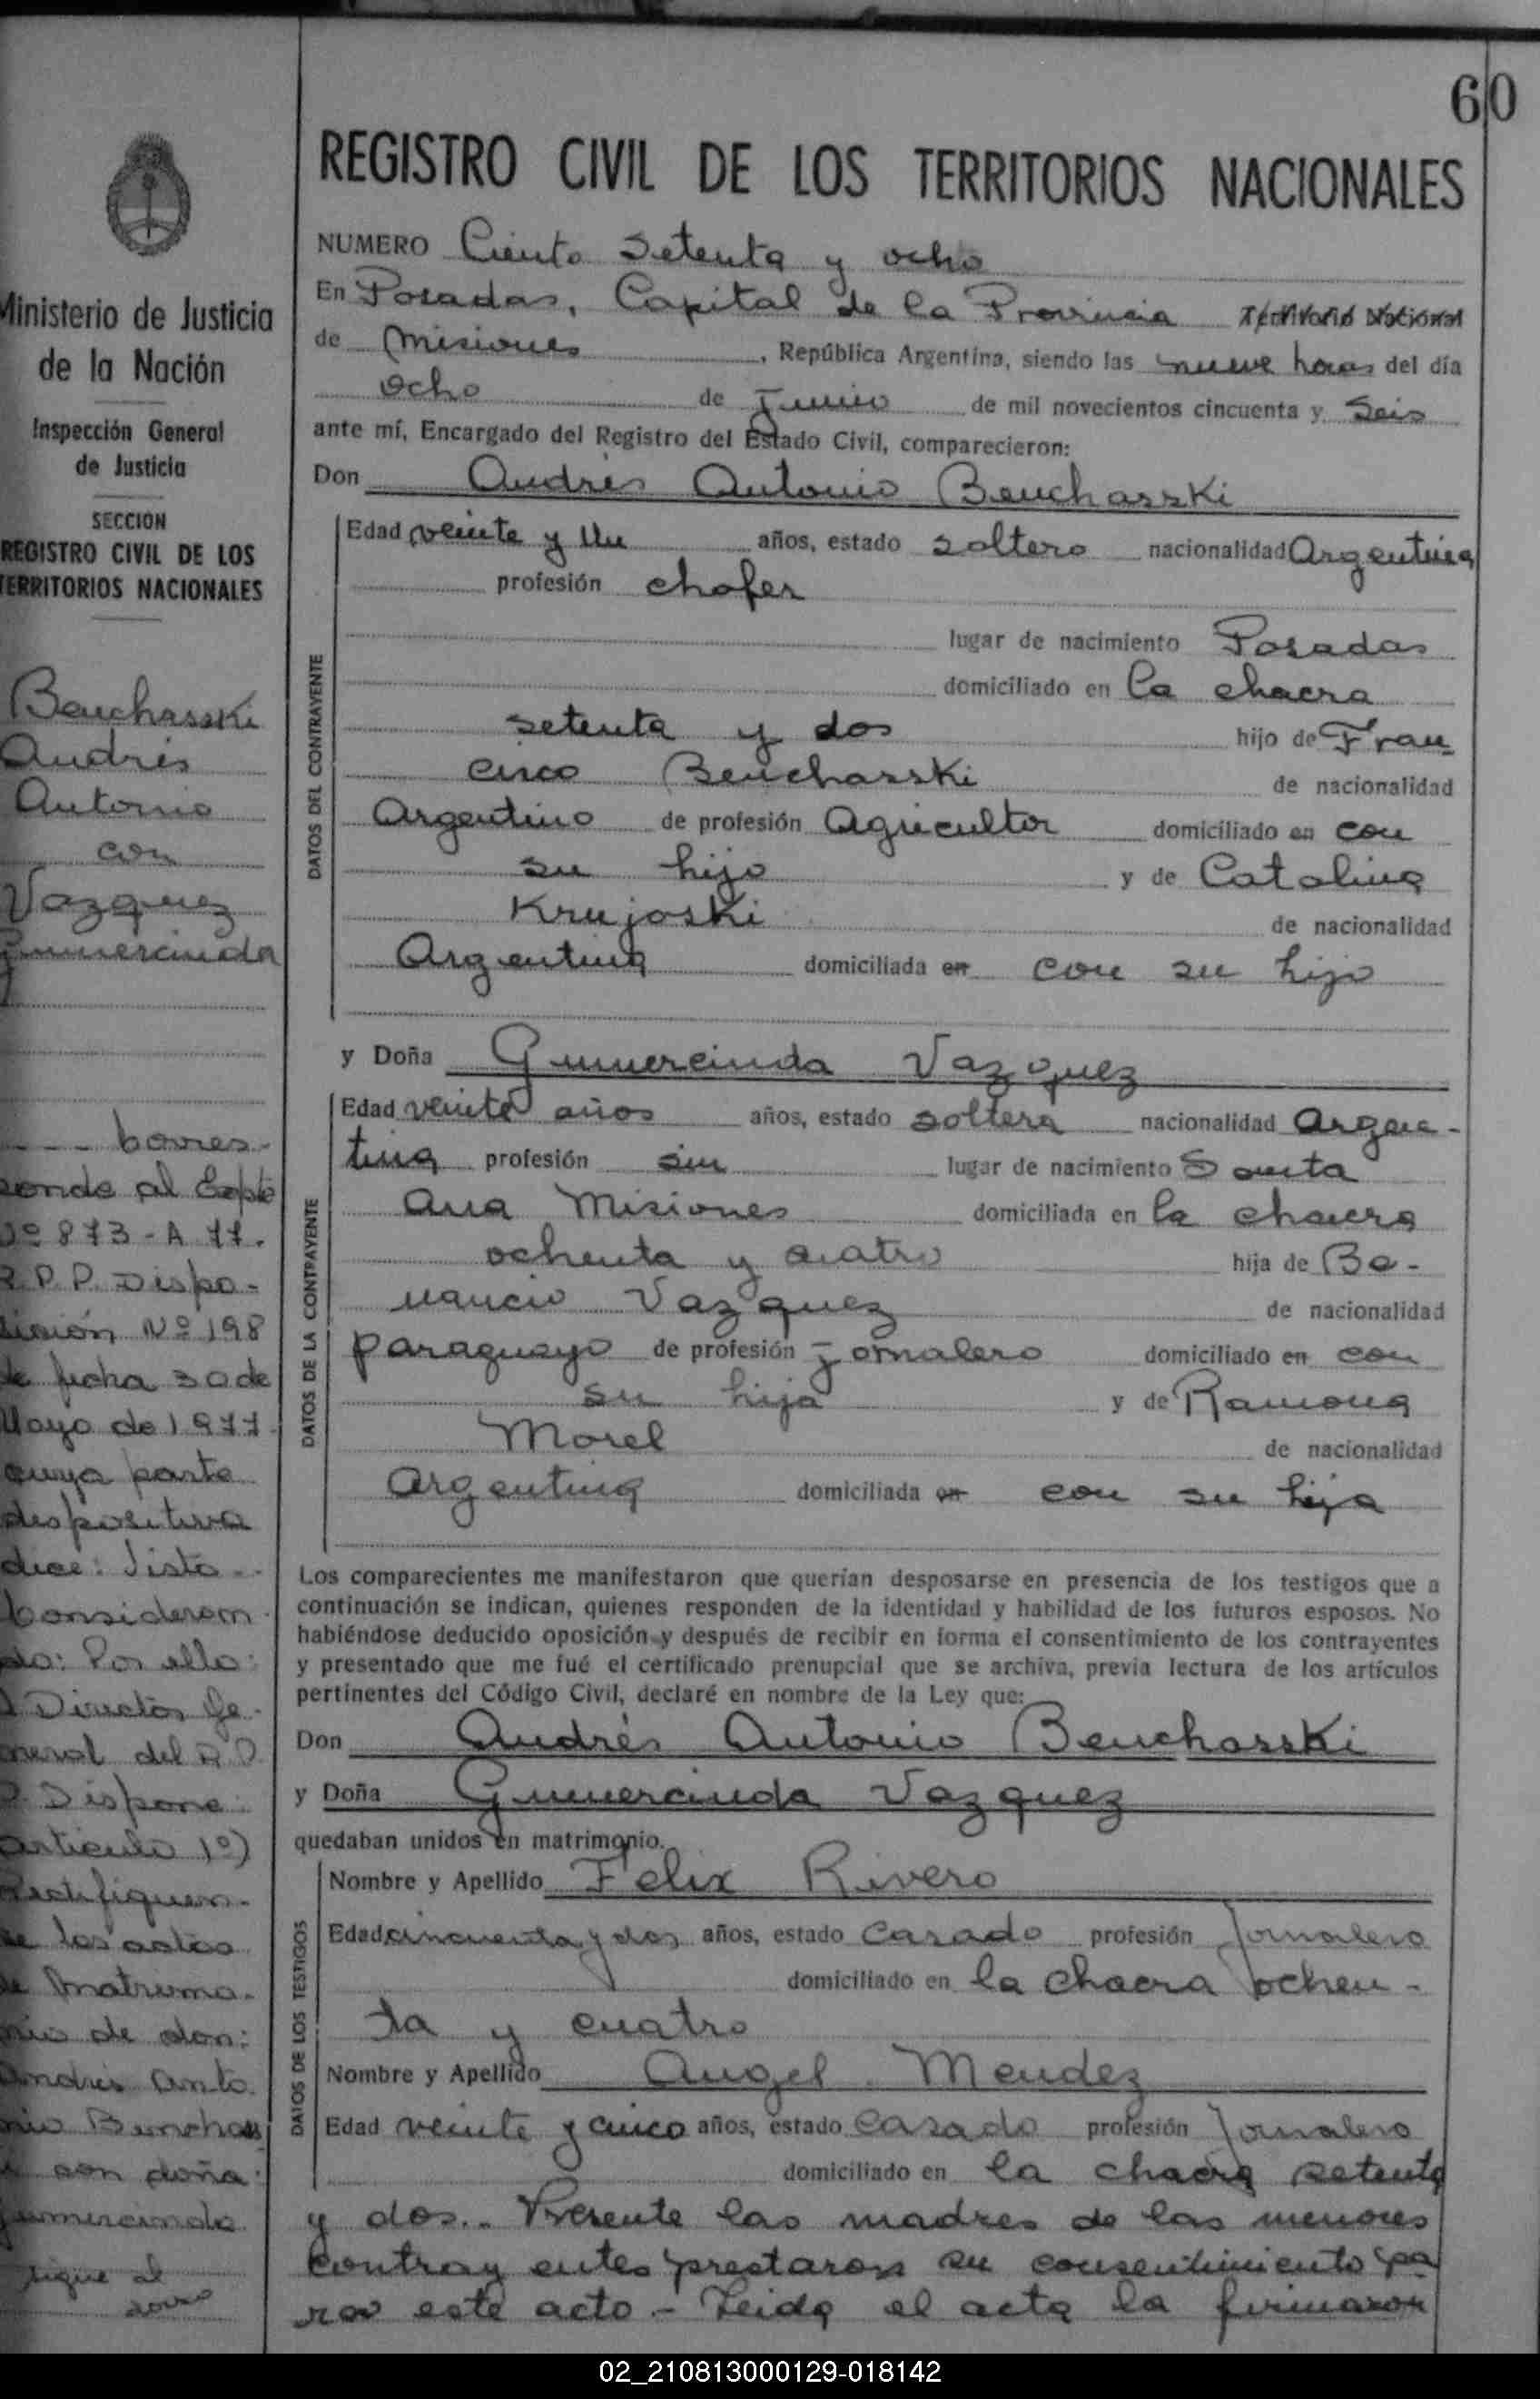 60
REGISTRO CIVIL DE LOS TERRITORIOS NACIONALES
NUMERO Ciento Setenta y ocho
En Posadas, Capital de la Provincia Territorio Nacional
de Misiones, República Argentina, siendo las nueve horas del día
Ocho de Junio de mil novecientos cincuenta y Seis
ante mí, Encargado del Registro del Estado Civil, comparecieron:
Don Andrés Antonio Beuchasski
Edad veinte y Un años, estado soltero nacionalidad Argentina
profesión chofer
lugar de nacimiento Posadas
domiciliado en la chacra
setenta y dos hijo de Fran
cisco Beuchasski de nacionalidad
Argentino de profesión Agricultor domiciliado en con
su hijo y de Catalina
Krujoski de nacionalidad
Argentina domiciliada en con su hijo
y Doña Gumercinda Vazquez
Edad veinte años años, estado soltera nacionalidad Argen-
tina profesión sin lugar de nacimiento Santa
Ana Misiones domiciliada en la chacra
ochenta y cuatro hija de Be-
nancio Vazquez de nacionalidad
paraguayo de profesión Jornalero domiciliado en con
su hija y de Ramona
Morel de nacionalidad
Argentina domiciliada en con su hija
Los comparecientes me manifestaron que querían desposarse en presencia de los testigos que a
continuación se indican, quienes responden de la identidad y habilidad de los futuros esposos. No
habiéndose deducido oposición y después de recibir en forma el consentimiento de los contrayentes
y presentado que me fué el certificado prenupcial que se archiva, previa lectura de los artículos
pertinentes del Código Civil, declaré en nombre de la Ley que:
Don Andrés Antonio Beuchasski
y Doña Gumercinda Vazquez
quedaban unidos en matrimonio.
Nombre y Apellido Felix Rivero
Edad cincuenta y dos años, estado Casado profesión Jornalero
domiciliado en la chacra ochen-
ta y cuatro
Nombre y Apellido Angel Mendez
Edad veinte y cinco años, estado Casado profesión Jornalero
domiciliado en la chacra setenta
y dos.. Presente las madres de las menores
contrayentes prestaron su consentimiento pa
ra este acto - Leida el acta la firmaron
DATOS DEL CONTRAYENTE
DATOS DE LA CONTRAYENTE
DATOS DE LOS TESTIGOS
Ministerio de Justicia
de la Nación
Inspección General
de Justicia
SECCION
REGISTRO CIVIL DE LOS
TERRITORIOS NACIONALES
Beuchasski
Andrés
Antonio
con
Vazquez
Gumercinda
--- Corres-
ponde al Expte
Nº 873-A 77.
R.P.P. Dispo-
sición Nº 198
de fecha 30 de
Mayo de 1977
cuya parte
dispositiva
dice: Visto..
Consideran-
do: Por ello:
El Director Ge-
neral del R.P.
P. Dispone:
Articulo 1º)
Rectifiquen-
se las actas
de Matrimo-
nio de don:
Andrés Anto
nio
con doña:
Gumercinda
sigue al
dorso
02_210813000129-018142